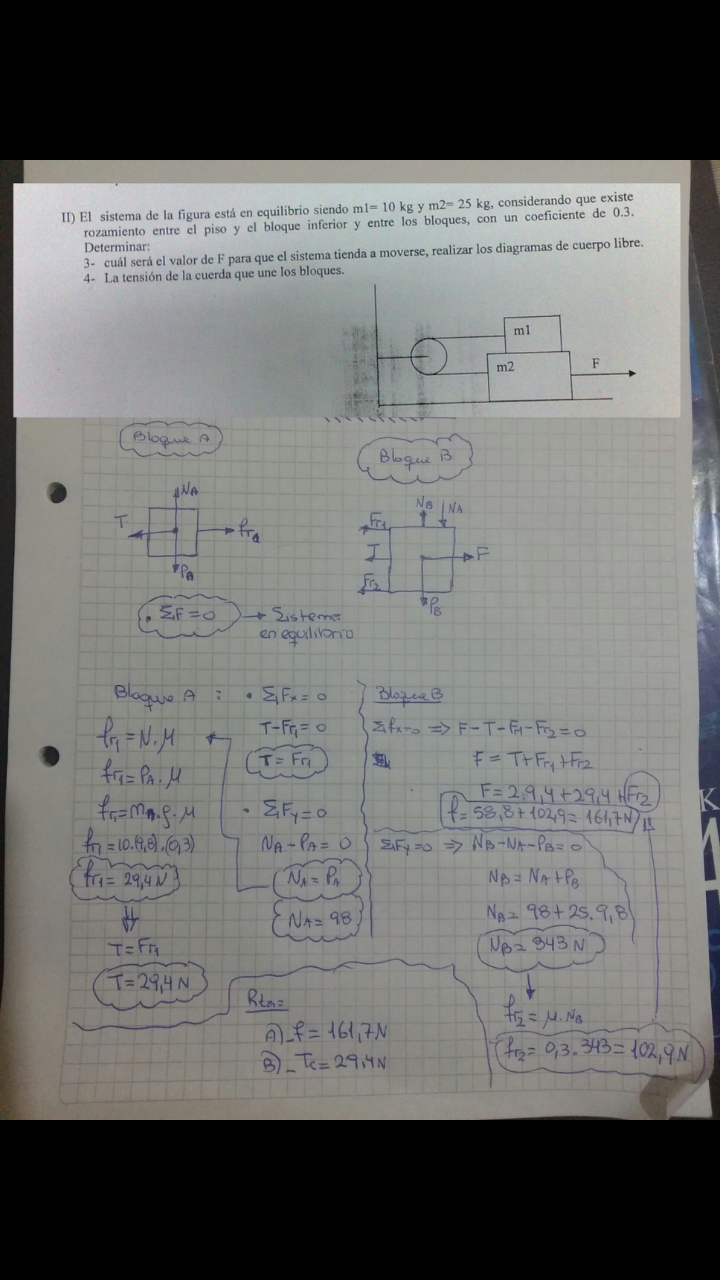 II) El sistema de la figura está en equilibrio siendo m1= 10 kg y m2= 25 kg, considerando que existe
rozamiento entre el piso y el bloque inferior y entre los bloques, con un coeficiente de 0.3.
Determinar:
3- cuál será el valor de F para que el sistema tienda a moverse, realizar los diagramas de cuerpo libre.
4- La tensión de la cuerda que une los bloques.
m1
m2
F
Bloque A
Bloque B
NA
T
frA
PA
NA
NA
Fr1
T
F
Fr2
PB
. ΣF=0 → Sistema
en equilibrio
Bloque A :
fr1=N.μ
fr1=PA.μ
fr1=mA.g.μ
fr1=10.(9,8).(0,3)
fr1=29,4N
T=Fr1
T=29,4N
• ΣFx=0
T-Fr1=0
T=Fr1
• ΣFy=0
NA-PA=0
NA=PA
NA=98
Bloque B
Σfx=0 ⇒ F-T-Fr1-Fr2=0
F=T+Fr1+Fr2
F=29,4+29,4+Fr2
f=58,8+102,9=161,7N
ΣFy=0 ⇒ NB-NA-PB=0
NB=NA+PB
NB=98+25.9,8
NB=343N
fr2=μ.NB
fr2=0,3.343=102,9N
Rta=
A)_f=161,7N
B)_Tc=29,4N
K